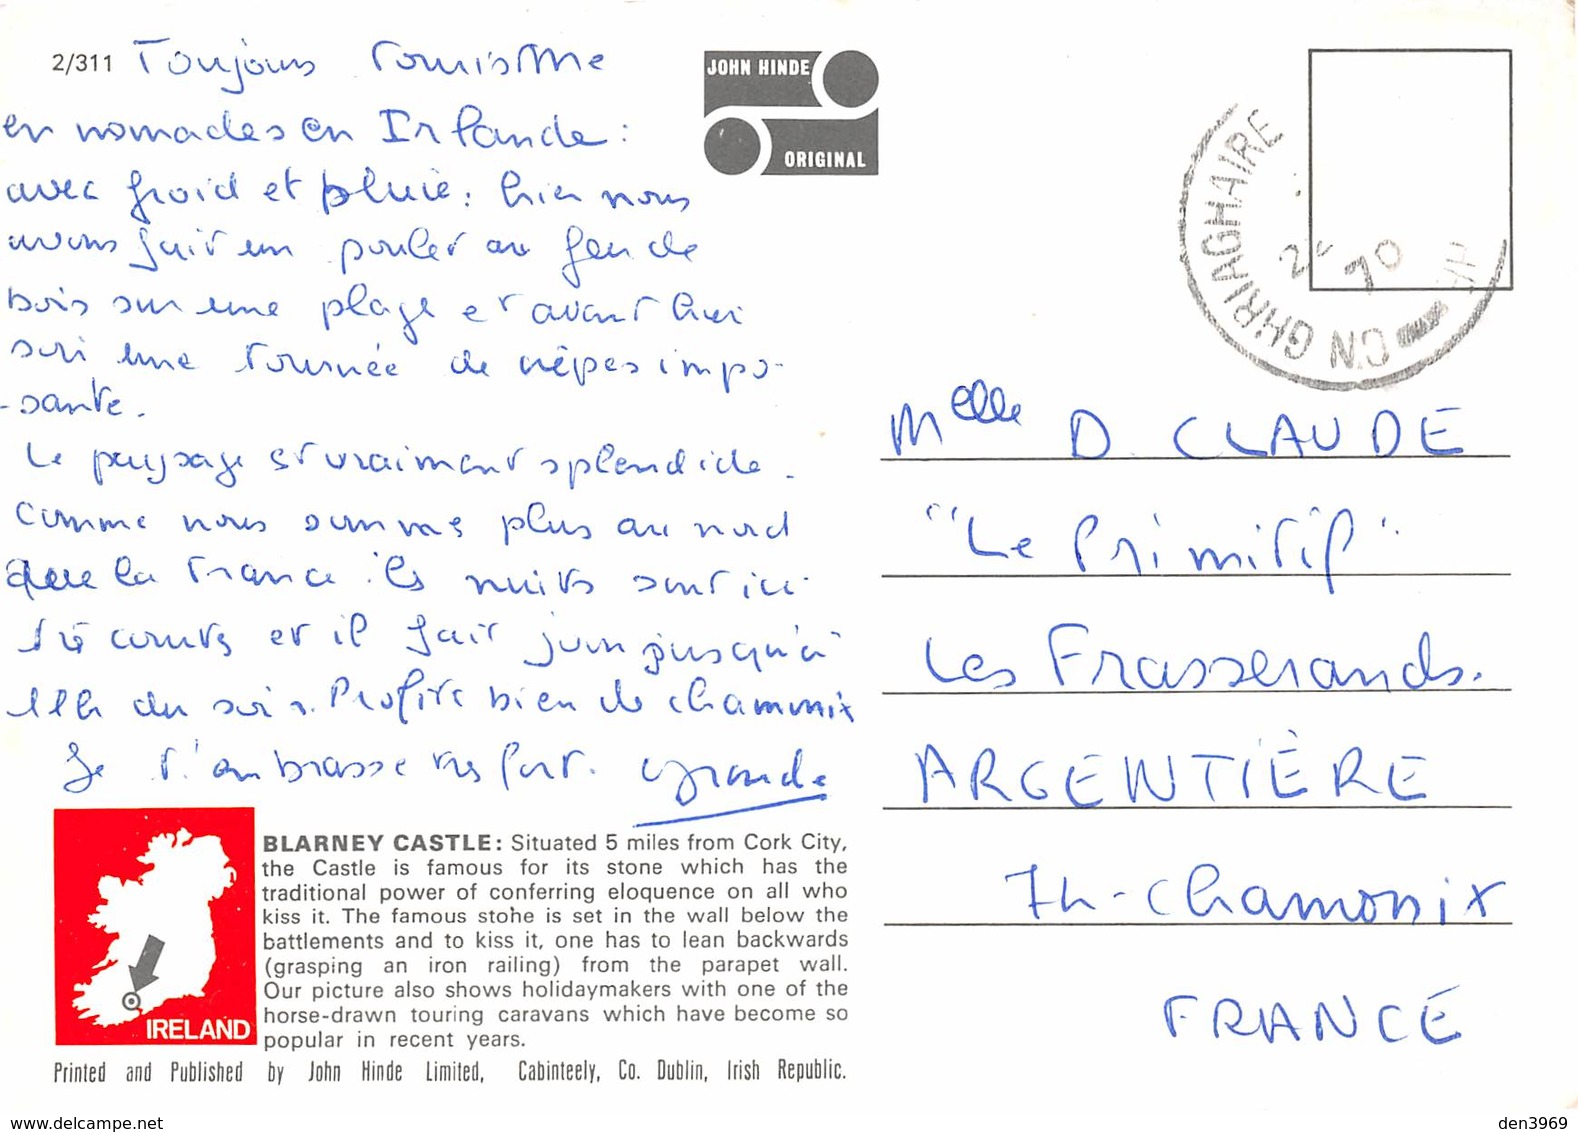 2/311 Toujours tourisme
en nomades en Irlande :
avec froid et pluie : hier nous
avons fait un poulet au feu de
bois sur une plage et avant hier
soir une tournée de crêpes impo-
-sante.
Le paysage est vraiment splendide.
comme nous sommes plus au nord
que la France les nuits sont ici
très courtes et il fait jour jusqu'à
11h du soir. Profite bien de chamonix
Je t'embrasse très fort.
JOHN HINDE
ORIGINAL
CN GHRIAGHAIRE
70
Melle D. CLAUDE
"Le Primitif"
Les Frasserands.
ARGENTIÈRE
74-Chamonix
FRANCE
BLARNEY CASTLE: Situated 5 miles from Cork City,
the Castle is famous for its stone which has the
traditional power of conferring eloquence on all who
kiss it. The famous stone is set in the wall below the
battlements and to kiss it, one has to lean backwards
(grasping an iron railing) from the parapet wall.
Our picture also shows holidaymakers with one of the
horse-drawn touring caravans which have become so
popular in recent years.
IRELAND
Printed and Published by John Hinde Limited, Cabinteely, Co. Dublin, Irish Republic.
www.delcampe.net
den3969